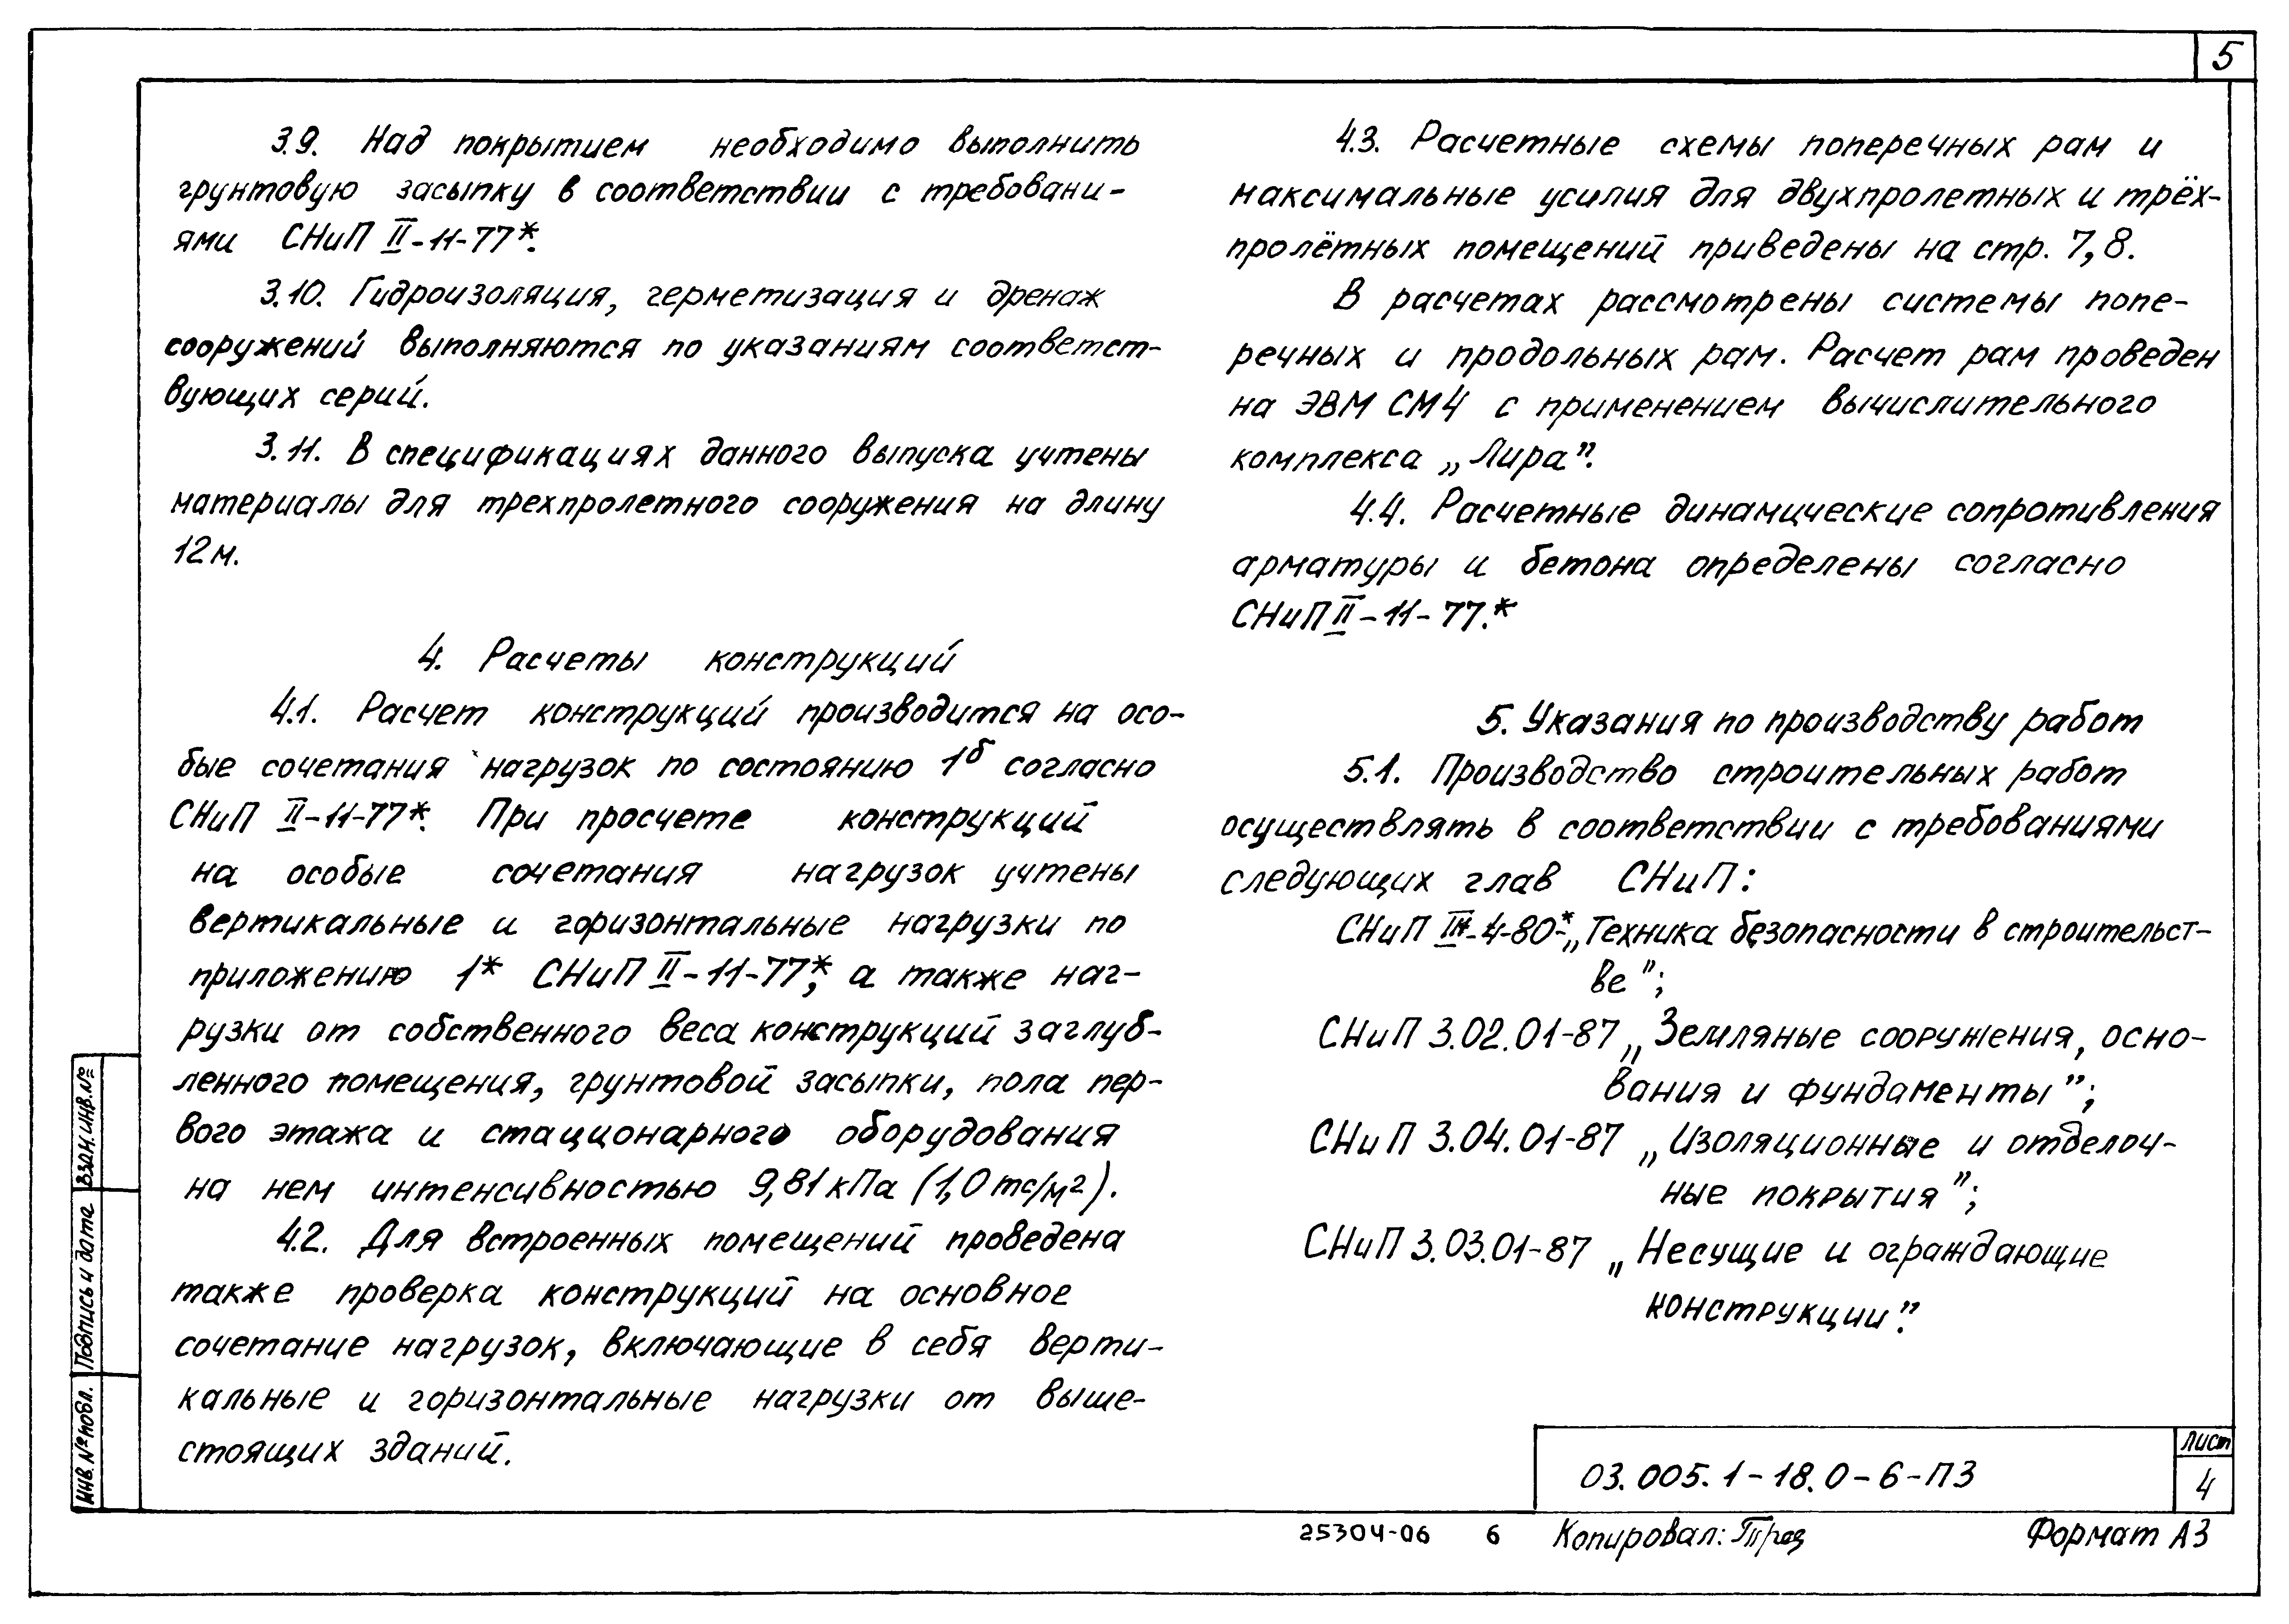 5
3.9. Над покрытием необходимо выполнить
грунтовую засыпку в соответствии с требовани-
ями СНиП II-11-77*.
3.10. Гидроизоляция, герметизация и дренаж
сооружений выполняются по указаниям соответст-
вующих серий.
3.11. В спецификациях данного выпуска учтены
материалы для трехпролетного сооружения на длину
12м.
4. Расчеты конструкций
4.1. Расчет конструкций производится на осо-
бые сочетания нагрузок по состоянию 1б согласно
СНиП II-11-77*. При просчете конструкций
на особые сочетания нагрузок учтены
вертикальные и горизонтальные нагрузки по
приложению 1* СНиП II-11-77*, а также наг-
рузки от собственного веса конструкций заглуб-
ленного помещения, грунтовой засыпки, пола пер-
вого этажа и стационарного оборудования
на нем интенсивностью 9,81кПа (1,0тс/м²).
4.2. Для встроенных помещений проведена
также проверка конструкций на основное
сочетание нагрузок, включающие в себя верти-
кальные и горизонтальные нагрузки от выше-
стоящих зданий.
4.3. Расчетные схемы поперечных рам и
максимальные усилия для двухпролетных и трёх-
пролётных помещений приведены на стр. 7,8.
В расчетах рассмотрены системы попе-
речных и продольных рам. Расчет рам проведен
на ЭВМ СМ4 с применением вычислительного
комплекса „Лира”.
4.4. Расчетные динамические сопротивления
арматуры и бетона определены согласно
СНиП II-11-77.*
5. Указания по производству работ
5.1. Производство строительных работ
осуществлять в соответствии с требованиями
следующих глав СНиП:
СНиП III-4-80*-„Техника безопасности в строительст-
ве”;
СНиП 3.02.01-87 „Земляные сооружения, осно-
вания и фундаменты”;
СНиП 3.04.01-87 „Изоляционные и отделоч-
ные покрытия”;
СНиП 3.03.01-87 „Несущие и ограждающие
конструкции”.
Взам.инв.№
Подпись и дата
Инв.№ подл.
03.005.1-18.0-6-ПЗ
Лист
4
25304-06 6 Копировал: Формат А3